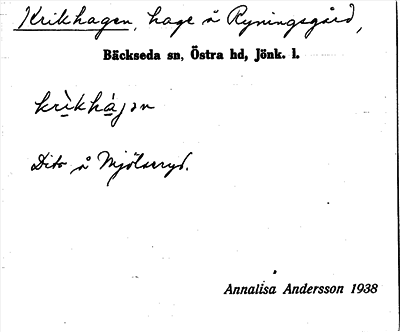 Krikhagen, hage å Ryningsgård,
Bäckseda sn, Östra hd, Jönk. l.
krìkhá̱gən
Dito å Mjölaryd.
Annalisa Andersson 1938